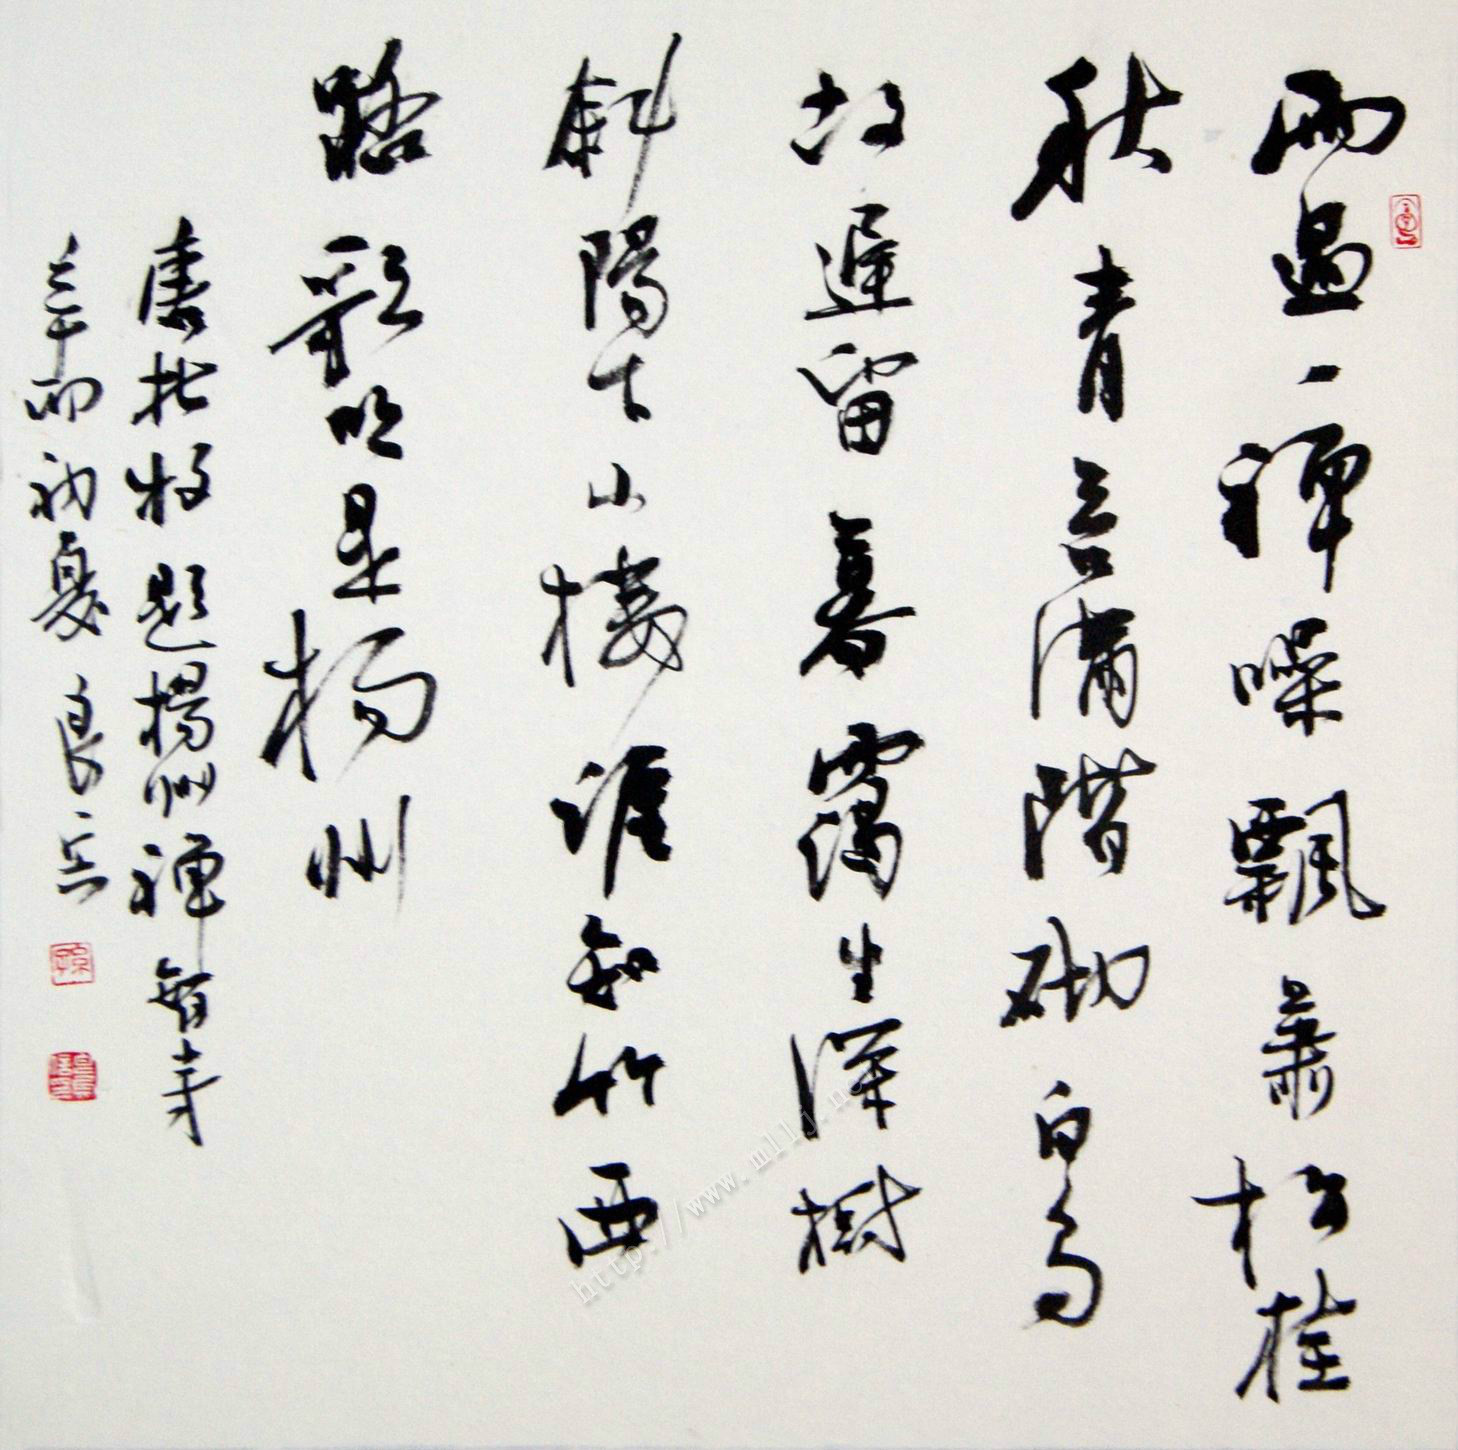 雨過一蟬噪飄蕭松桂
秋青苔滿階砌白鳥
故遲留暮靄生深樹
斜陽下小樓誰知竹西
路歌吹是揚州
唐杜牧題揚州禪智寺
辛卯初夏良